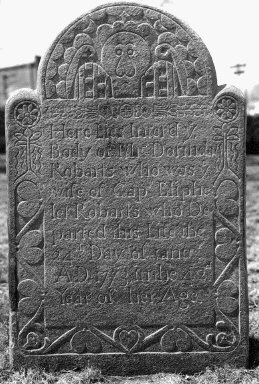 Here lies Interd y
Body of Mrs
Robarts who was y
wife of Capt Eliphe
let Robarts who De
parted this Life the
Day of Janry
A.D. in the
Year of her Age